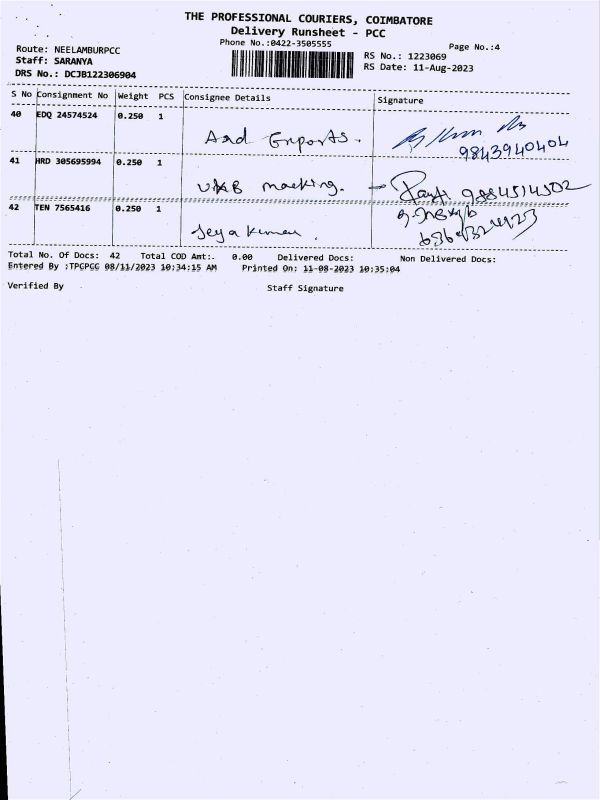 THE PROFESSIONAL COURIERS, COIMBATORE
Delivery Runsheet - PCC
Phone No.:0422-3505555
Page No.:4
Route: NEELAMBURPCC
Staff: SARANYA
DRS No.: DCJB122306904
RS No.: 1223069
RS Date: 11-Aug-2023
S No Consignment No Weight PCS Consignee Details Signature
40 EDQ 24574524 0.250 1
And Exports.
9843940404
41 HRD 305695994 0.250 1
marking. - 9884514502
42 TEN 7565416 0.250 1
Jeya kumar.
Total No. Of Docs: 42 Total COD Amt:. 0.00 Delivered Docs: Non Delivered Docs:
Entered By :TPCPCC 08/11/2023 10:34:15 AM Printed On: 11-08-2023 10:35:04
Verified By Staff Signature